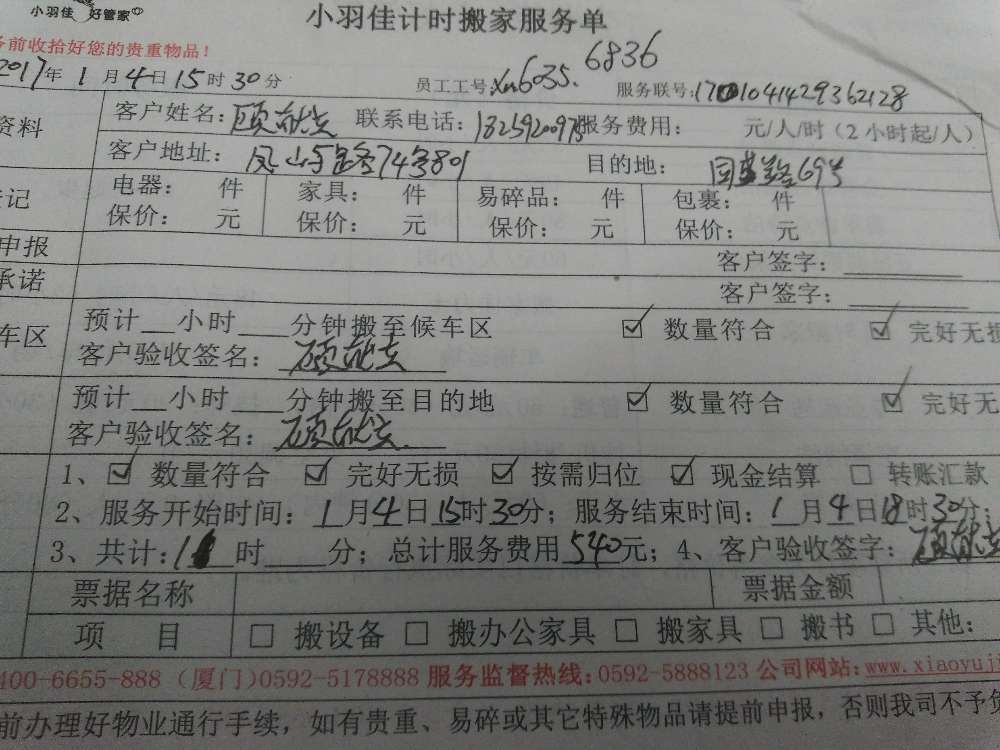 小羽佳 好管家
小羽佳计时搬家服务单
务前收拾好您的贵重物品！
2017年1月4日15时30分 员工工号：xm6035. 6836 服务联号：1701041429362128
资料 客户姓名： 联系电话： 服务费用： 元/人/时（2小时起/人）
客户地址： 74号801 目的地： 69号
登记 电器： 件 家具： 件 易碎品： 件 包裹： 件
保价： 元 保价： 元 保价： 元 保价： 元
申报 客户签字：
承诺 客户签字：
车区 预计__小时___分钟搬至候车区 ☑ 数量符合 ☑ 完好无损
客户验收签名：
预计__小时___分钟搬至目的地 ☑ 数量符合 ☑ 完好无
客户验收签名：
1、☑ 数量符合 ☑ 完好无损 ☑ 按需归位 ☑ 现金结算 □ 转账汇款
2、服务开始时间：1月4日15时30分；服务结束时间：1月4日18时30分；
3、共计： 时____分；总计服务费用540元；4、客户验收签字：
票据名称 票据金额
项 目 □ 搬设备 □ 搬办公家具 □ 搬家具 □ 搬书 □ 其他：
400-6655-888（厦门)0592-5178888 服务监督热线：0592-5888123 公司网站：www.xiaoyuji
前办理好物业通行手续，如有贵重、易碎或其它特殊物品请提前申报，否则我司不予赔